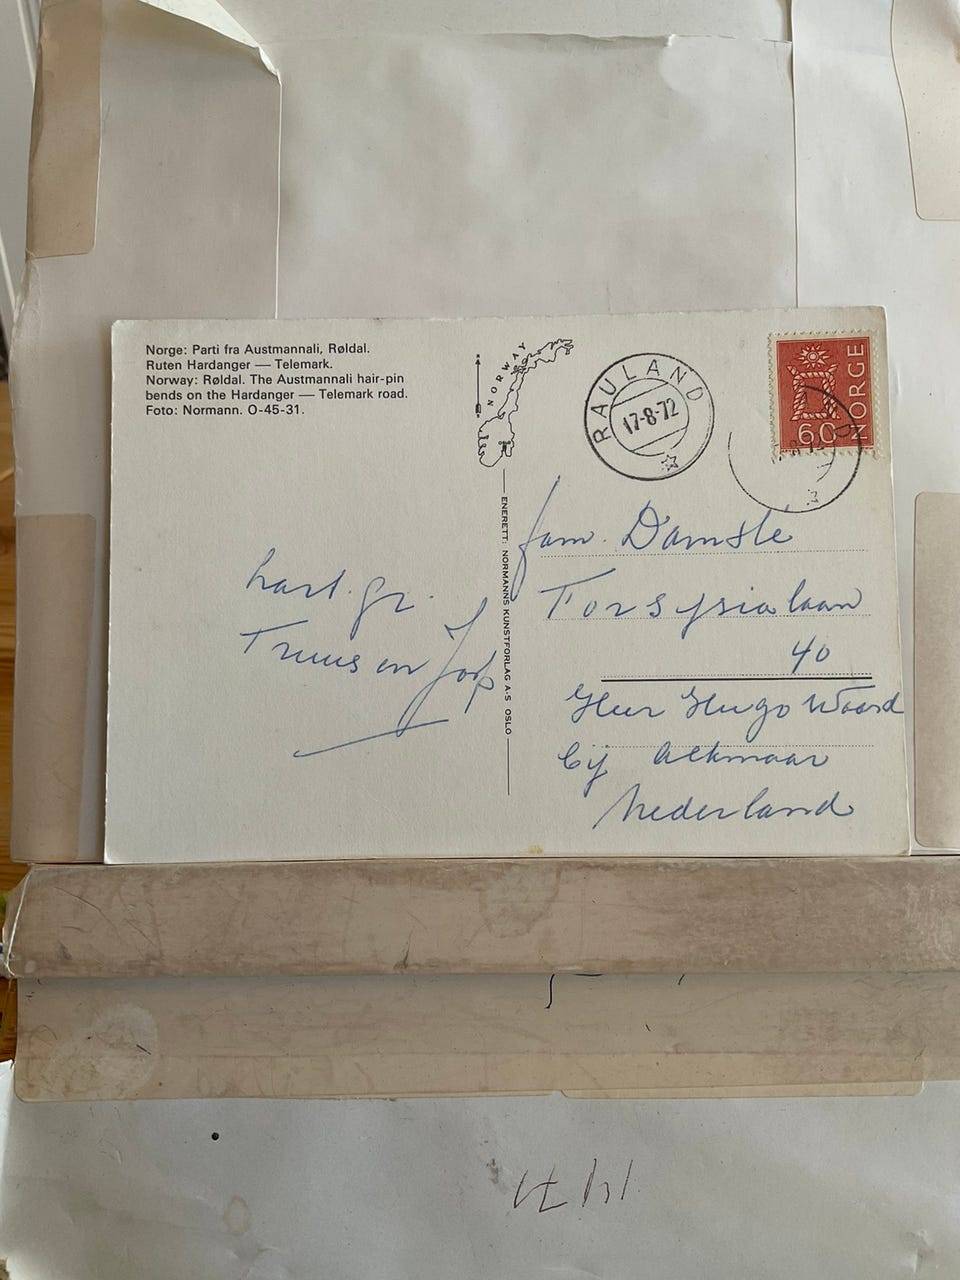 Norge: Parti fra Austmannali, Røldal.
Ruten Hardanger — Telemark.
Norway: Røldal. The Austmannali hair-pin
bends on the Hardanger — Telemark road.
Foto: Normann. O-45-31.
NORWAY
RAULAND
17-8-72
60
NORGE
ENERETT: NORMANNS KUNSTFORLAG A·S OSLO
hart. gr.
Truus en Jop
fam. Damsté
Forsysialaan
40
Heer Hugo Waard
bij Alkmaar
Nederland